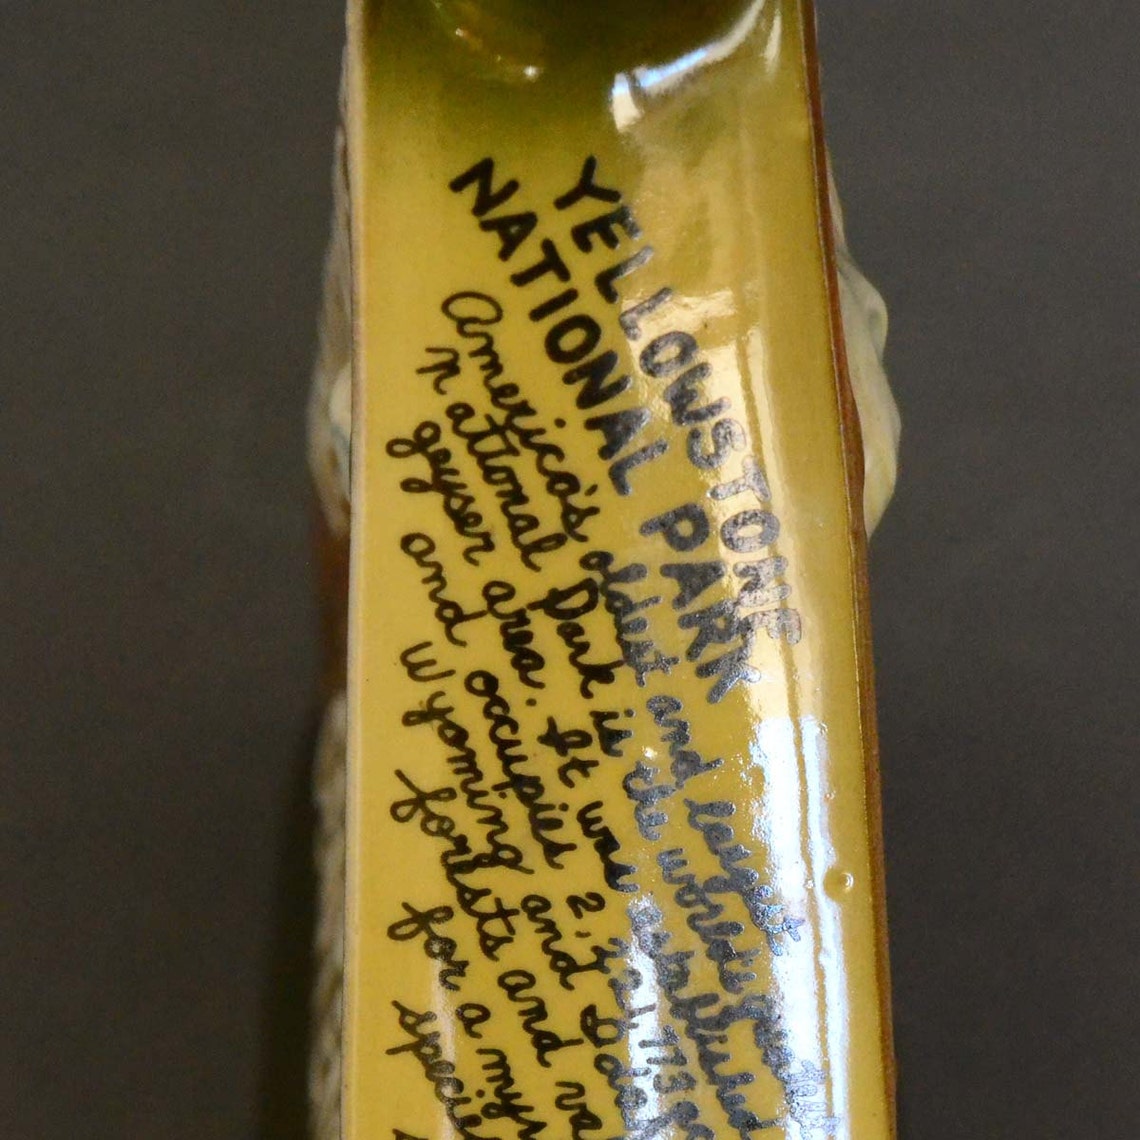 YELLOWSTONE
NATIONAL PARK
America's oldest and largest
national Park is the world's
geyser area. It was established
and occupies 2,
Wyoming and
forests and
for a
species